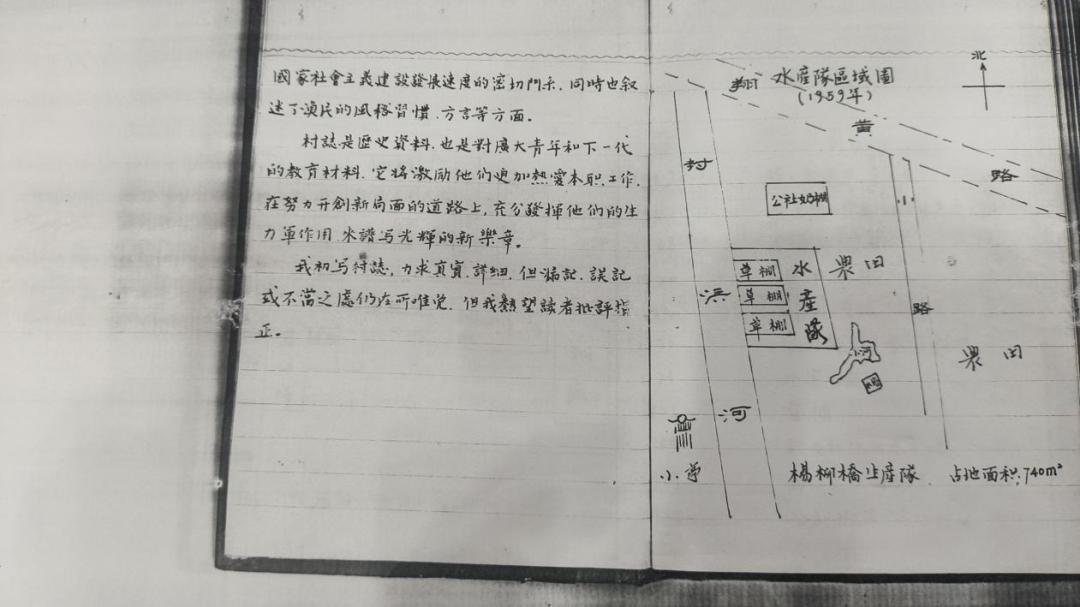 國家社會主義建設發展速度的密切關系.同時也叙
述了漁民的風格習慣.方言等方面。
村誌是歷史資料.也是對廣大青年和下一代
的教育材料.它將激励他們更加熱愛本职工作.
在努力开創新局面的道路上,充分發揮他們的生
力軍作用.来譜写光輝的新樂章。
我初写村誌,力求真實.詳細.但漏記.誤記
或不當之處仍在所难免.但我懇望讀者批評指
正。
水產隊區域圖
(1959年)
北
翔
黄
路
封
浜
河
小
路
公社奶棚
草棚
草棚
草棚
水產隊
農田
小河
農田
小学
楊柳橋生產隊 占地面积:740m²